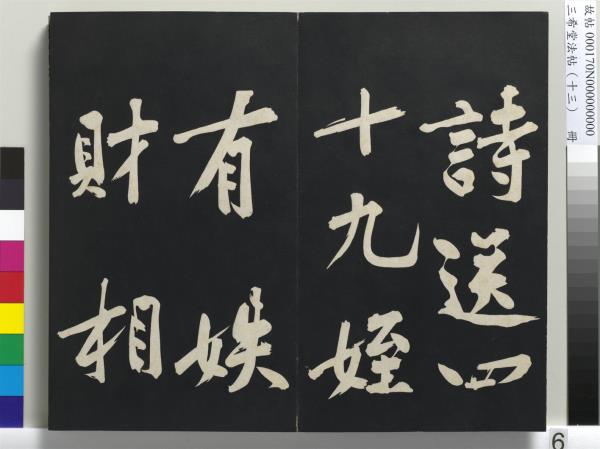 詩送四
十九姪
有妷
財相
故帖 000170N000000000
三希堂法帖(十三) 冊
6